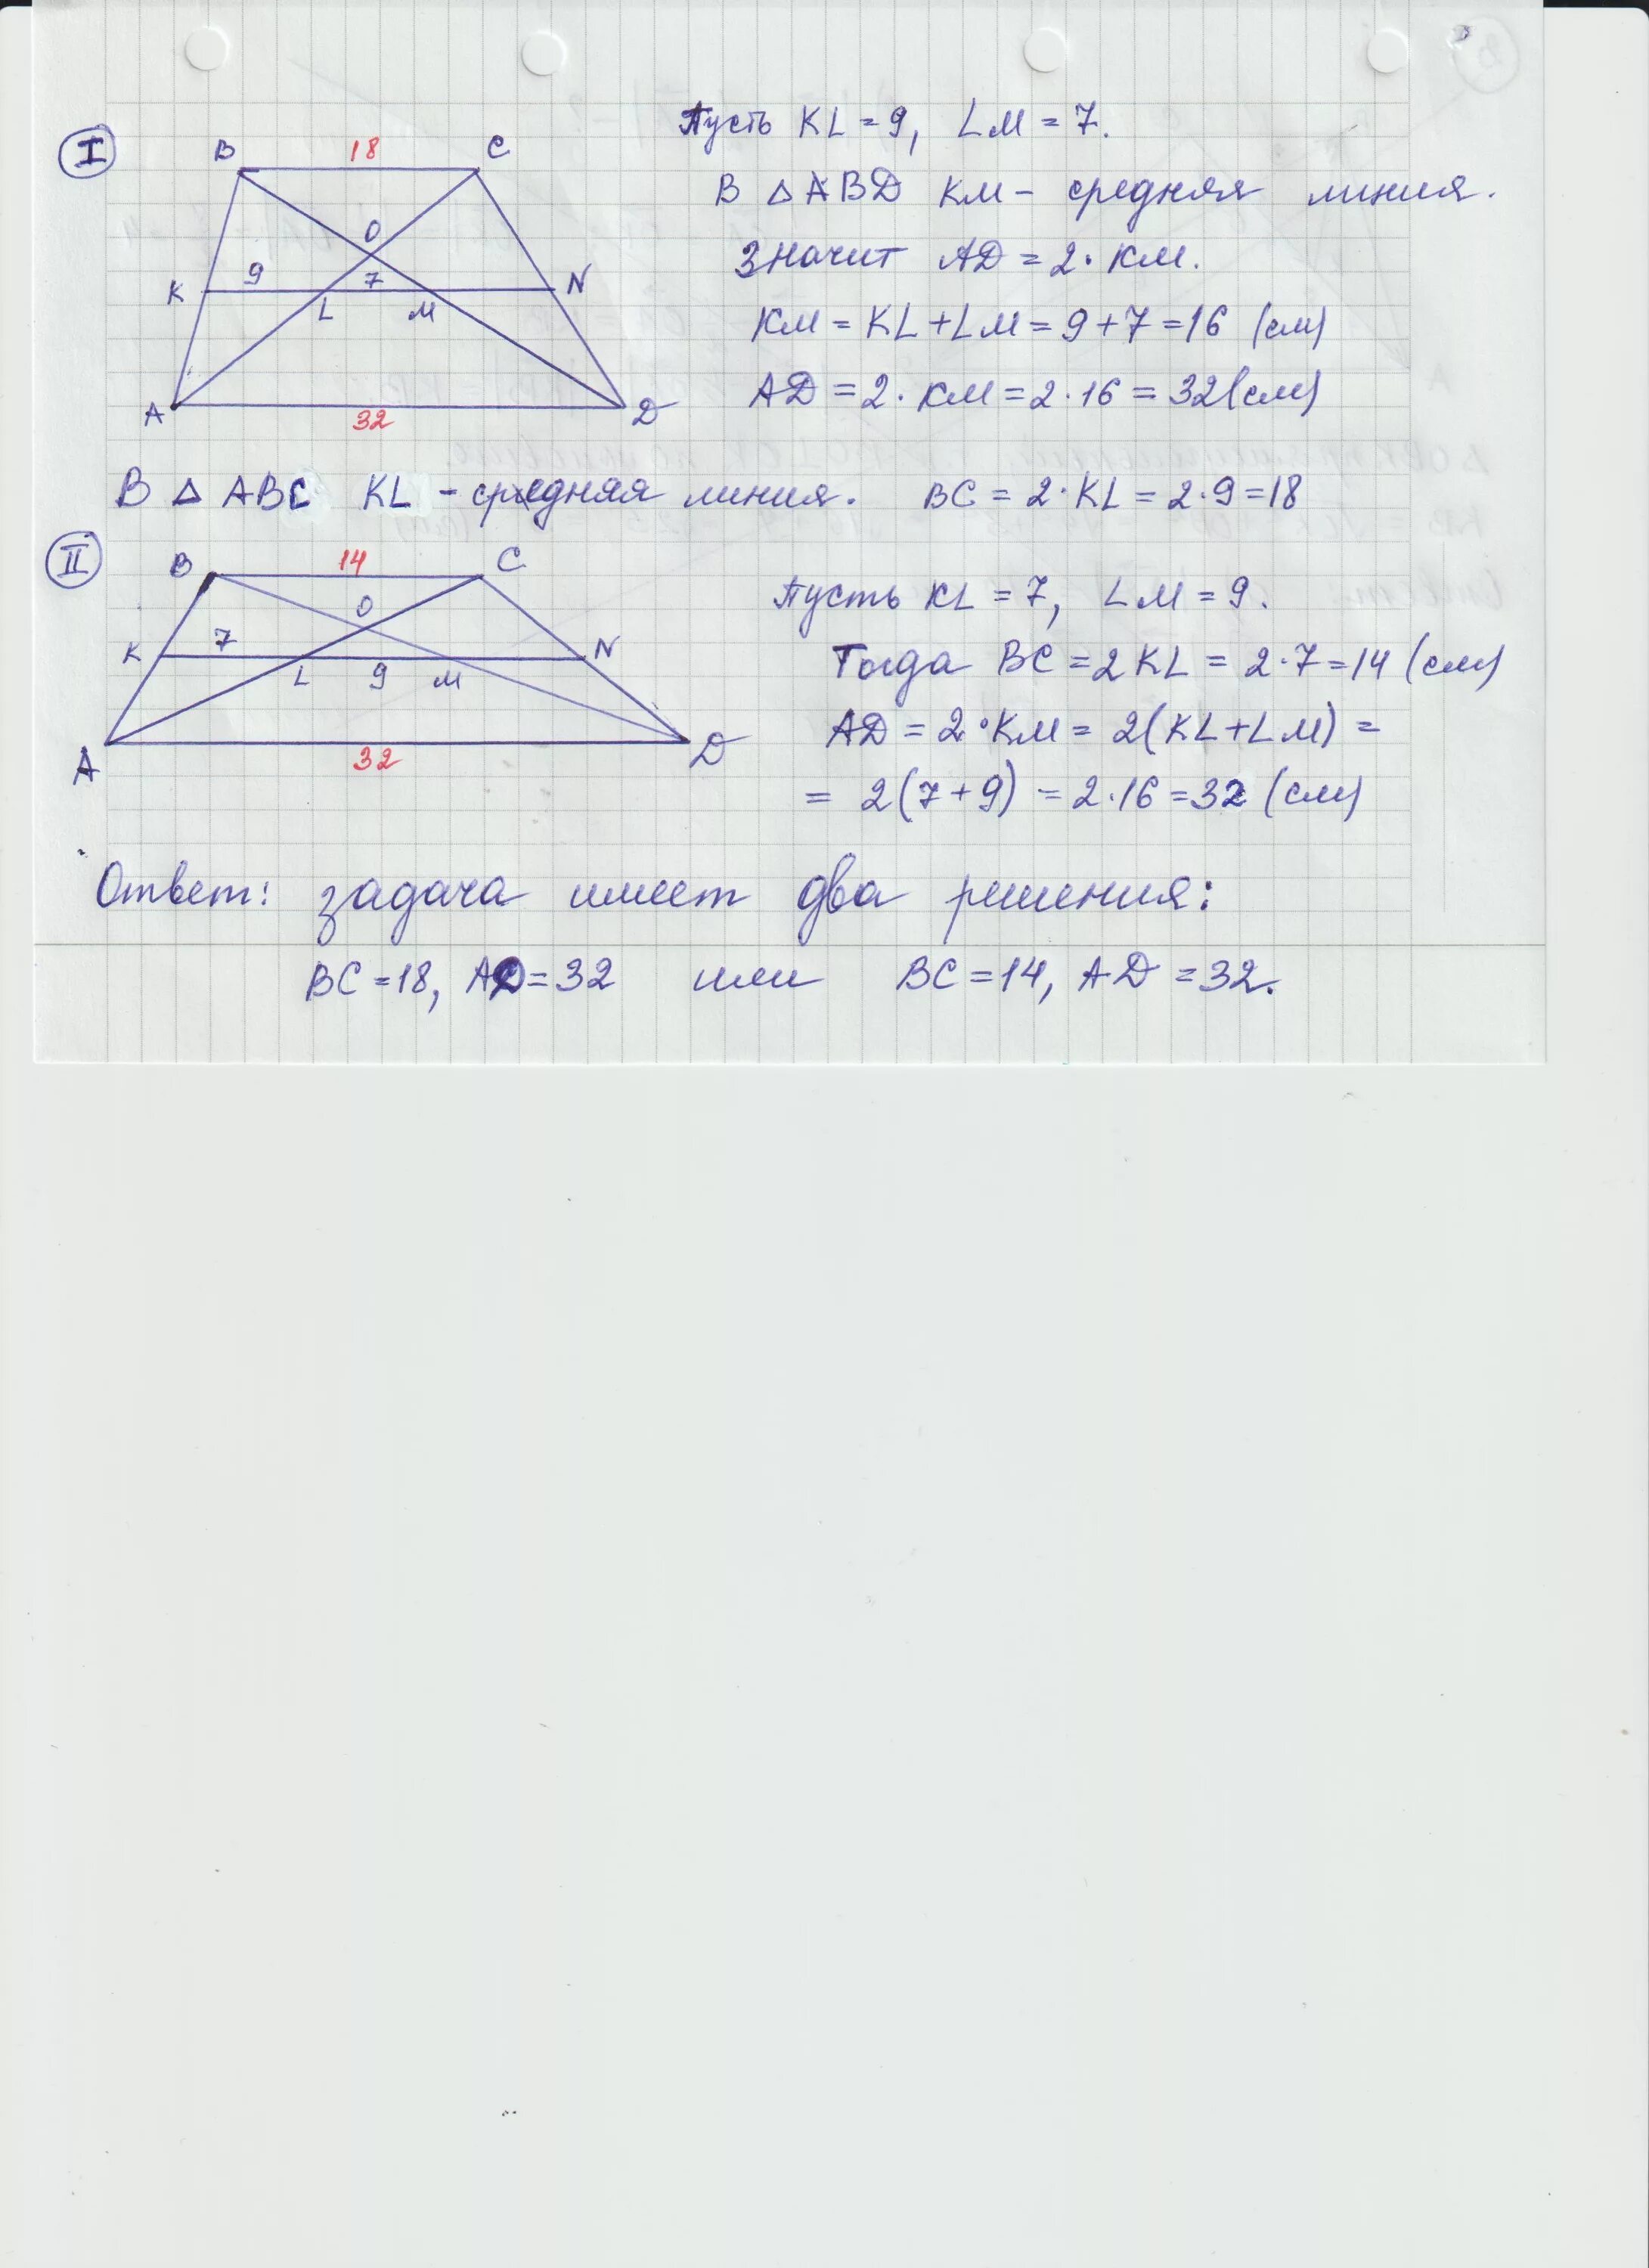 I
B 18 C
O
K 9 7 N
L M
A 32 D
Пусть KL = 9, LM = 7.
В △ ABD KM - средняя линия.
Значит AD = 2 · KM.
KM = KL + LM = 9 + 7 = 16 (см)
AD = 2 · KM = 2 · 16 = 32 (см)
В △ ABC KL - средняя линия. BC = 2 · KL = 2 · 9 = 18
II
B 14 C
O
K 7 N
L 9 M
A 32 D
Пусть KL = 7, LM = 9.
Тогда BC = 2KL = 2 · 7 = 14 (см)
AD = 2 · KM = 2(KL + LM) =
= 2(7 + 9) = 2 · 16 = 32 (см)
Ответ: задача имеет два решения:
BC = 18, AD = 32 или BC = 14, AD = 32.